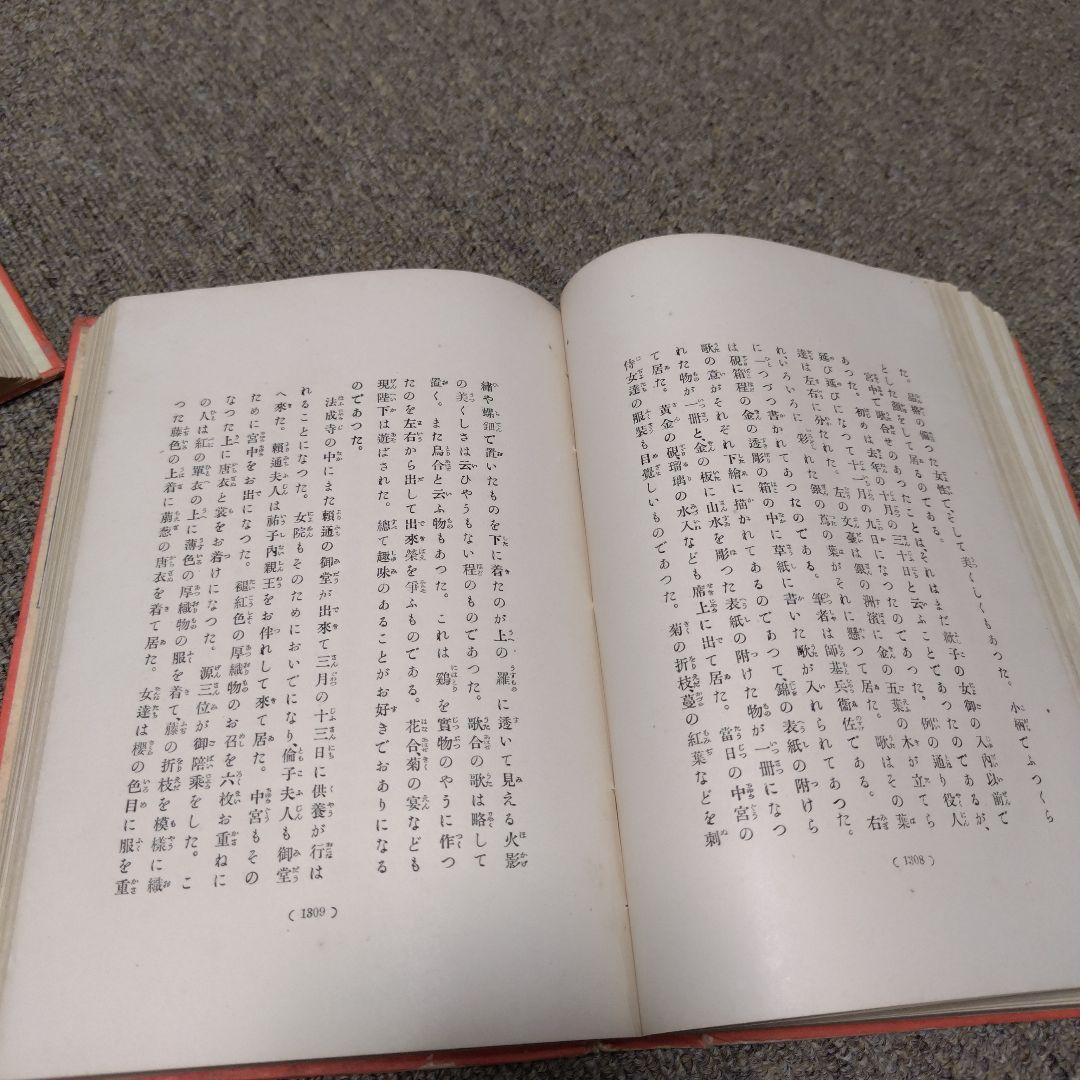 た。品格の備つた女性で、そして美くしくもあつた。小柄でふつくら
とした顏をして居るのである。
宮中で歌合せのあつたことは、それはまだ嫄子の女御の入內以前で
あつた。初めは去年の十月の三十日と云ふことであつたのであるが、
延び延びになつて十一月の九日になつたのであつた。例の通り役人
達は左右に分たれた。左の文臺は銀の洲濱に金の五葉の木が立てら
れ、いろいろに彩れた銀の蔦の葉がそれに懸つて居た。歌はその葉
に一つづつ書かれてあつたのである。筆者は師基兵衞佐である。右
は硯箱程の金の透彫の箱の中に草紙に書いた歌が入れられてあつた。
歌の意がそれぞれ下繪に描かれてあるのであつて、錦の表紙の附けら
れた物が一冊と金の板に山水を彫つた表紙の附けた物が一冊になつ
て居た。黃金の硯、瑠璃の水入なども席上に出て居た。當日の中宮の
侍女達の服裝も目覺しいものであつた。菊の折枝、蔓の紅葉などを刺
(1308)
繡や螺鈿で置いたものを下に着たのが上の羅に透いて見える火影
の美くしさは云ひやうもない程のものであつた。歌合の歌は略して
置く。また鳥合と云ふ物もあつた。これは鷄を實物のやうに作つ
たのを左右から出して出來榮を爭ふものである。花合菊の宴なども
現陛下は遊ばされた。總て趣味のあることがお好きでおありになる
のであつた。
法成寺の中にまた賴通の御堂が出來て三月の十三日に供養が行は
れることになつた。女院もそのためにおいでになり、倫子夫人も御堂
へ來た。賴通夫人は祐子內親王をお伴れして來て居た。中宮もその
ために宮中をお出になつた。褪紅色の厚織物のお召を六枚お重ねに
なつた上に唐衣と裳をお着けになつた。源三位が御陪乘をした。こ
の人は紅の單衣の上に薄色の厚織物の服を着て、藤の折枝を模樣に織
つた藤色の上着に萠葱の唐衣を着て居た。女達は櫻の色目に服を重
(1309)